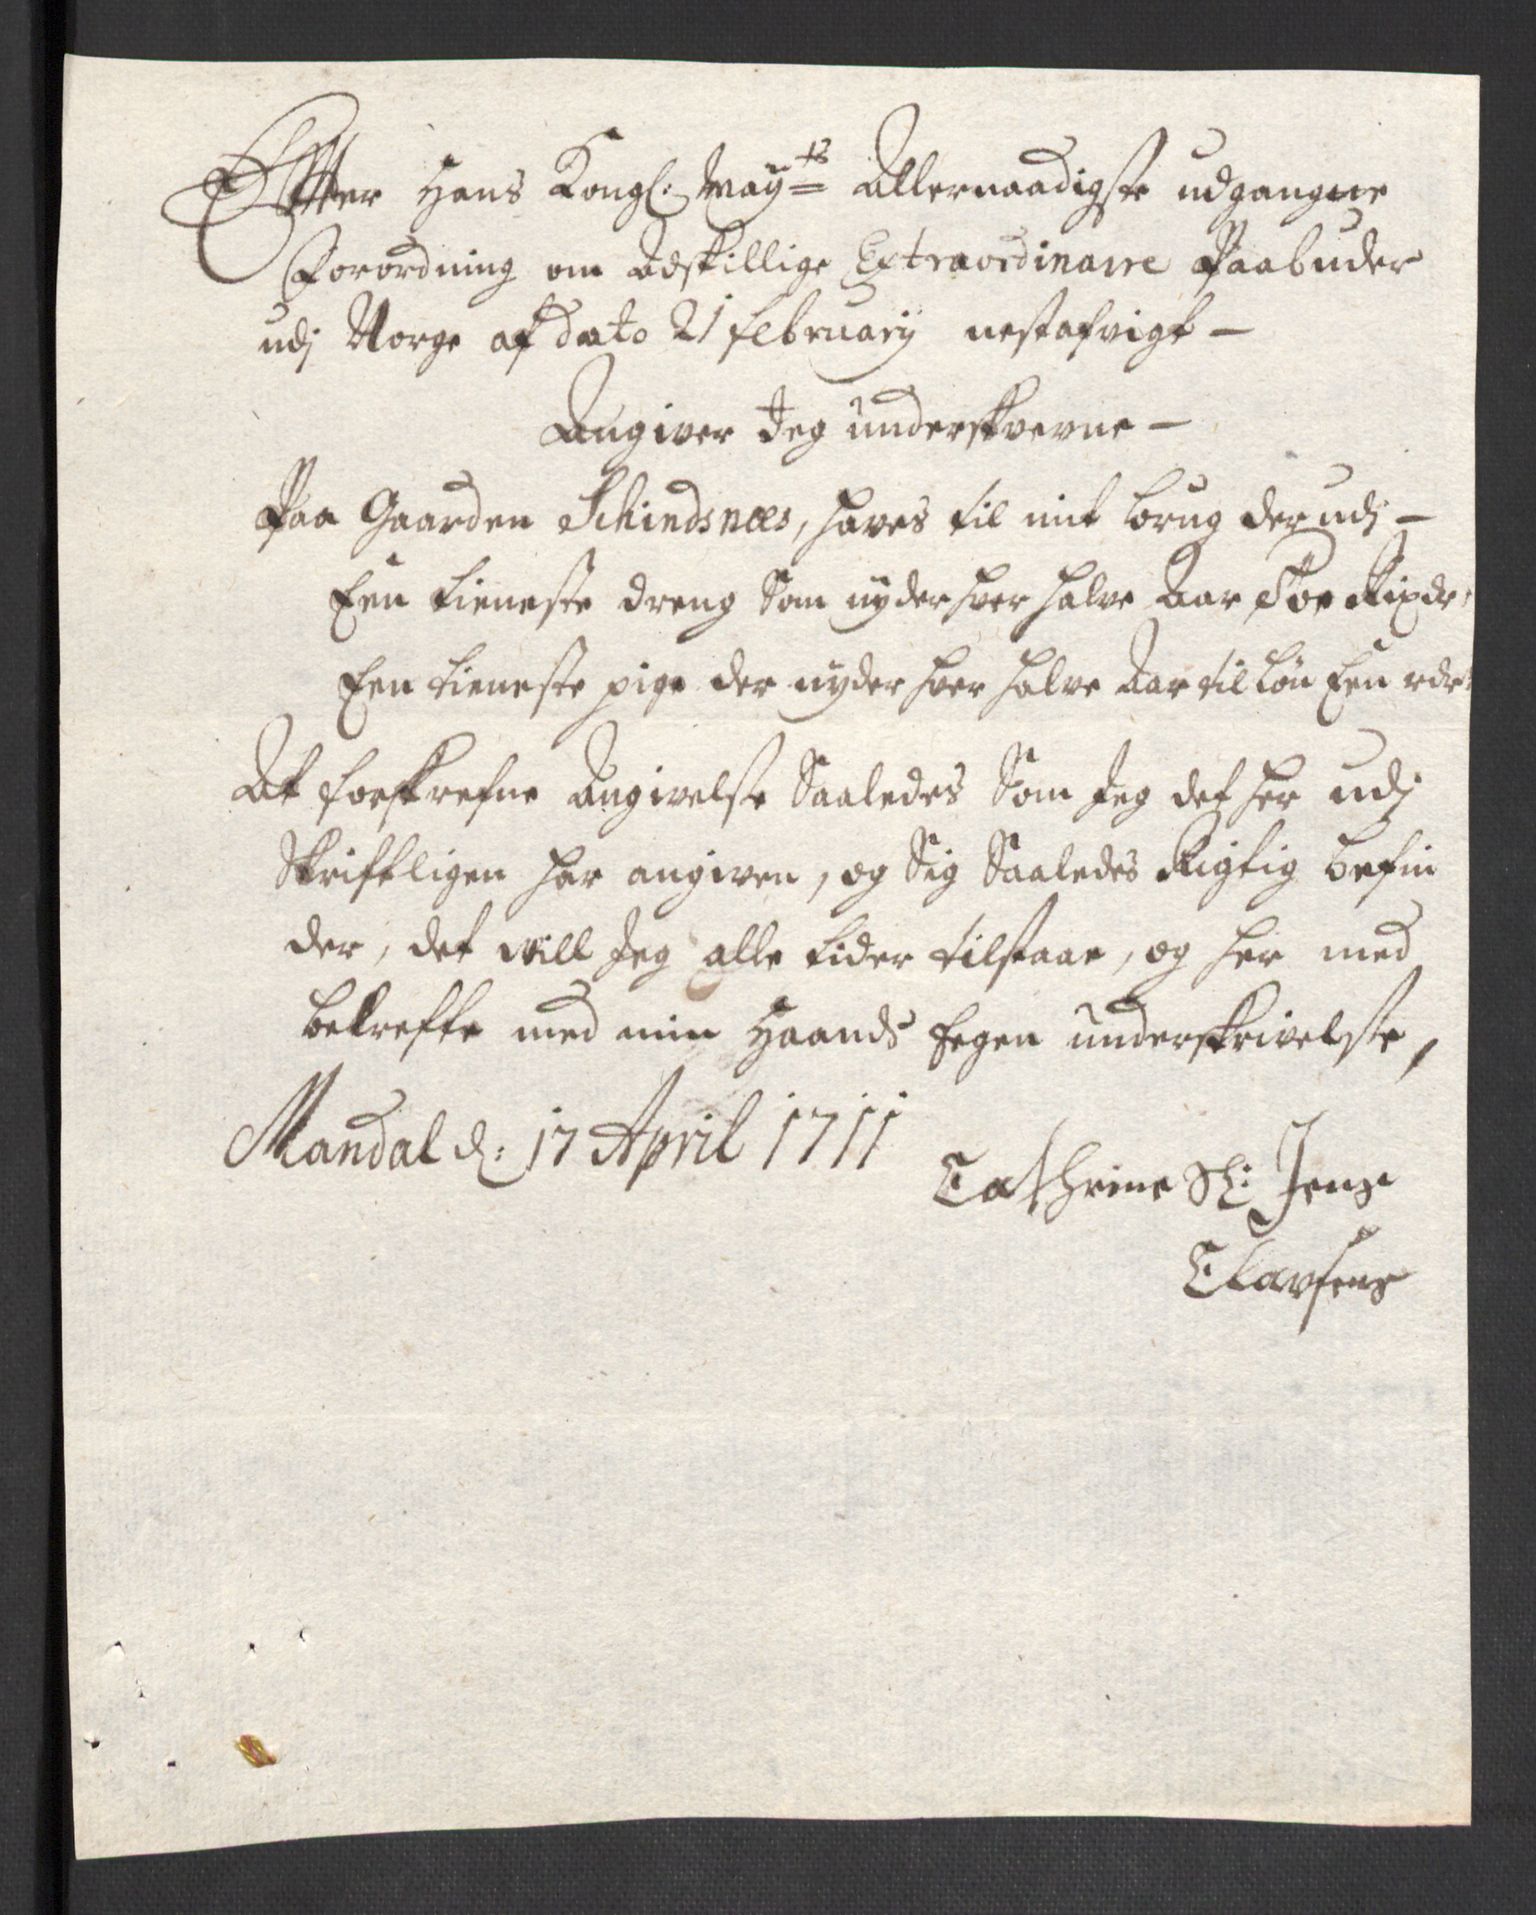 Effter Hans Kongl: May:ts Allernaadigste udgangne
Forordning om Adskillige Extraordinaire Paabuder
udj Norge af dato 21 february nestafvigt –
Angiver Jeg underskrevne –
Paa Gaarden Schindsnæs, haves til mit brug der udj –
Een tieneste dreng Som nyder hver halve Aar Toe Rixdr:
Een tieneste pige der nyder hver halve Aar til Løn Een rdr:
At forskrefne Angivelse Saaledes Som Jeg det her udj
Skriftligen har angiven, og Sig Saaledes Rigtig befin
der, det will Jeg alle tider tilstaae, og her med
bekreffte med min Haands Eegen underskrivelse,
Mandal d: 17 April 1711
Cathrine Sl: Jens
Clavsens